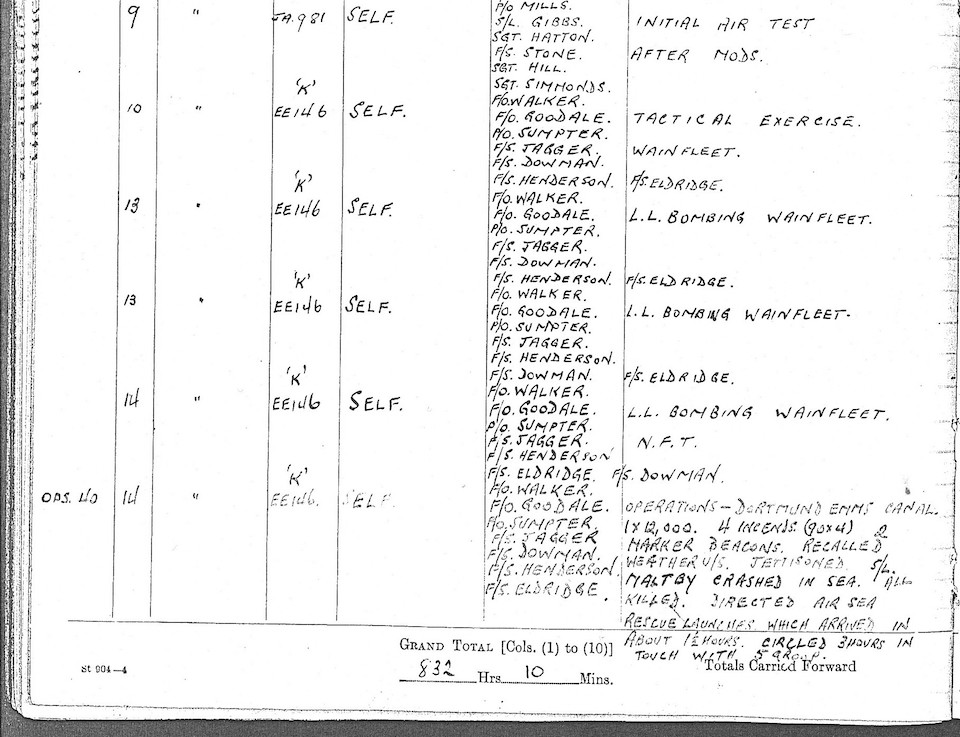 P/O MILLS.
9 " JA.981 SELF. S/L. GIBBS. INITIAL AIR TEST
SGT. HATTON.
F/S. STONE. AFTER MODS.
SGT. HILL.
'K' SGT. SIMMONDS.
F/O. WALKER.
10 " EE146 SELF. F/O. GOODALE. TACTICAL EXERCISE.
P/O. SUMPTER.
F/S. JAGGER. WAINFLEET.
F/S. DOWMAN.
'K' F/S. HENDERSON. F/S. ELDRIDGE.
F/O. WALKER.
13 " EE146 SELF. F/O. GOODALE. L.L. BOMBING WAINFLEET.
P/O. SUMPTER.
F/S. JAGGER.
F/S. DOWMAN.
'K' F/S. HENDERSON. F/S. ELDRIDGE.
F/O. WALKER.
13 " EE146 SELF. F/O. GOODALE. L.L. BOMBING WAINFLEET.
P/O. SUMPTER.
F/S. JAGGER.
F/S. HENDERSON.
'K' F/S. DOWMAN. F/S. ELDRIDGE.
F/O. WALKER.
14 " EE146 SELF. F/O. GOODALE. L.L. BOMBING WAINFLEET.
P/O. SUMPTER.
F/S. JAGGER. N.F.T.
F/S. HENDERSON
'K' F/S. ELDRIDGE. F/S. DOWMAN.
F/O. WALKER.
OPS. 40 14 " EE146. SELF. F/O. GOODALE. OPERATIONS - DORTMUND EMMS CANAL.
P/O. SUMPTER. 1X12,000. 4 INCENDS (90X4) 2
F/S. JAGGER MARKER BEACONS. RECALLED
F/S. DOWMAN. WEATHER U/S. JETTISONED. S/L.
F/S. HENDERSON MALTBY CRASHED IN SEA. ALL
F/S. ELDRIDGE. KILLED. DIRECTED AIR SEA
RESCUE LAUNCHES WHICH ARRIVED IN
ABOUT 1½ HOURS. CIRCLED 3 HOURS IN
TOUCH WITH 5 GROUP.
GRAND TOTAL [Cols. (1) to (10)]
832 Hrs. 10 Mins.
Totals Carried Forward
St 904—4